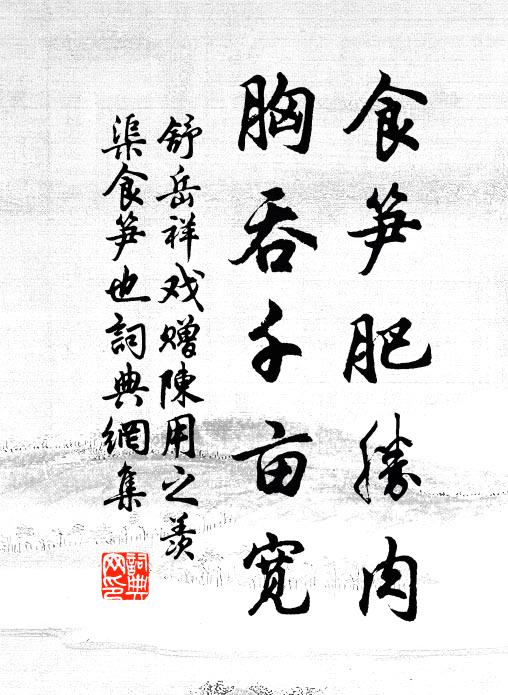 食笋肥勝肉
胸吞千亩宽
舒岳祥戏赠陳用之羡
渠食笋也詞典網集
詞典网印